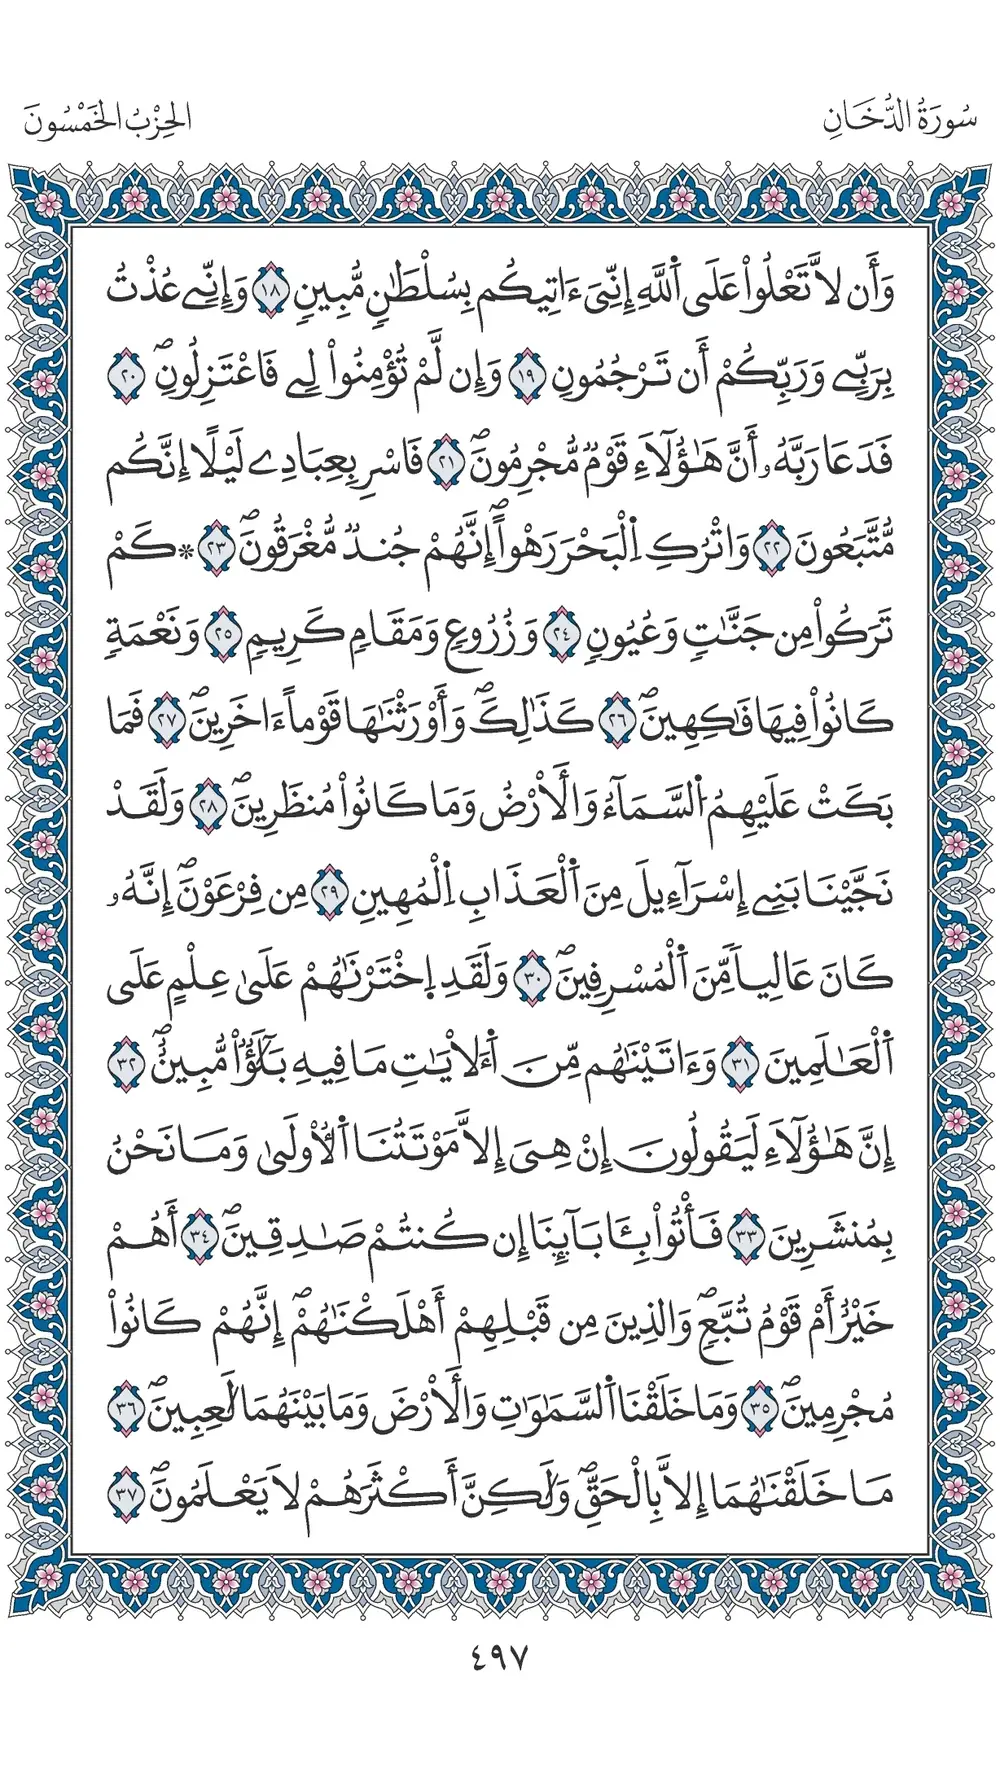 سُورَةُ الدُّخَانِ
الحِزْبُ الخَمْسُونَ
وَأَن لَّا تَعْلُواْ عَلَى اَ۬للَّهِ إِنِّيَ ءَاتِيكُم بِسُلْطَٰنٖ مُّبِينٖ ١٨ وَإِنِّے عُذْتُ
بِرَبِّے وَرَبِّكُمْ أَن تَرْجُمُونِ ١٩ وَإِن لَّمْ تُؤْمِنُواْ لِے فَاعْتَزِلُونِۖ ٢٠
فَدَعَا رَبَّهُۥ أَنَّ هَٰٓؤُلَآءِ قَوْمٞ مُّجْرِمُونَۖ ٢١ فَاسْرِ بِعِبَادِے لَيْلًا إِنَّكُم
مُّتَّبَعُونَ ٢٢ وَاتْرُكِ اِ۬لْبَحْرَ رَهْواًۖ إِنَّهُمْ جُندٞ مُّغْرَقُونَۖ ٢٣ * كَمْ
تَرَكُواْ مِن جَنَّٰتٖ وَعُيُونٖ ٢٤ وَزُرُوعٖ وَمَقَامٖ كَرِيمٖ ٢٥ وَنَعْمَةٖ
كَانُواْ فِيهَا فَٰكِهِينَۖ ٢٦ كَذَٰلِكَۖ وَأَوْرَثْنَٰهَا قَوْماً ءَاخَرِينَۖ ٢٧ فَمَا
بَكَتْ عَلَيْهِمُ اُ۬لسَّمَآءُ وَالْأَرْضُ وَمَا كَانُواْ مُنظَرِينَۖ ٢٨ وَلَقَدْ
نَجَّيْنَا بَنِے إِسْرَآءِيلَ مِنَ اَ۬لْعَذَابِ اِ۬لْمُهِينِ ٢٩ مِن فِرْعَوْنَۖ إِنَّهُۥ
كَانَ عَالِياٗ مِّنَ اَ۬لْمُسْرِفِينَۖ ٣٠ وَلَقَدِ اِ۪خْتَرْنَٰهُمْ عَلَىٰ عِلْمٍ عَلَى
اَ۬لْعَٰلَمِينَ ٣١ وَءَاتَيْنَٰهُم مِّنَ اَ۬لْأٓيَٰتِ مَا فِيهِ بَلَٰٓؤٞاْ مُّبِينٌۖ ٣٢
إِنَّ هَٰٓؤُلَآءِ لَيَقُولُونَ إِنْ هِيَ إِلَّا مَوْتَتُنَا اَ۬لْأُولَىٰ وَمَا نَحْنُ
بِمُنشَرِينَ ٣٣ فَأْتُواْ بِـَٔابَآئِنَا إِن كُنتُمْ صَٰدِقِينَۖ ٣٤ أَهُمْ
خَيْرٌ أَمْ قَوْمُ تُبَّعٖۖ وَالذِينَ مِن قَبْلِهِمْ أَهْلَكْنَٰهُمْۖ إِنَّهُمْ كَانُواْ
مُجْرِمِينَۖ ٣٥ وَمَا خَلَقْنَا اَ۬لسَّمَٰوَٰتِ وَالْأَرْضَ وَمَا بَيْنَهُمَا لَٰعِبِينَۖ ٣٦
مَا خَلَقْنَٰهُمَا إِلَّا بِالْحَقِّۖ وَلَٰكِنَّ أَكْثَرَهُمْ لَا يَعْلَمُونَۖ ٣٧
٤٩٧